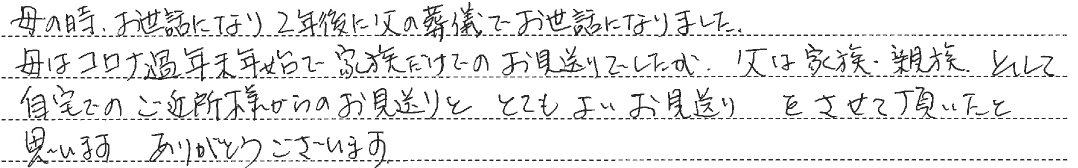 母の時、お世話になり2年後に父の葬儀でお世話になりました。
母はコロナ過年末年始で家族だけでのお見送りでしたが、父は家族・親族、として
自宅でのご近所様からのお見送りと とてもよいお見送り をさせて頂いたと
思います ありがとうございます